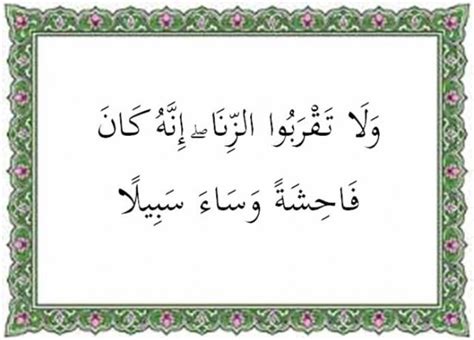 وَلَا تَقْرَبُوا الزِّنَا ۖ إِنَّهُ كَانَ
فَاحِشَةً وَسَاءَ سَبِيلًا